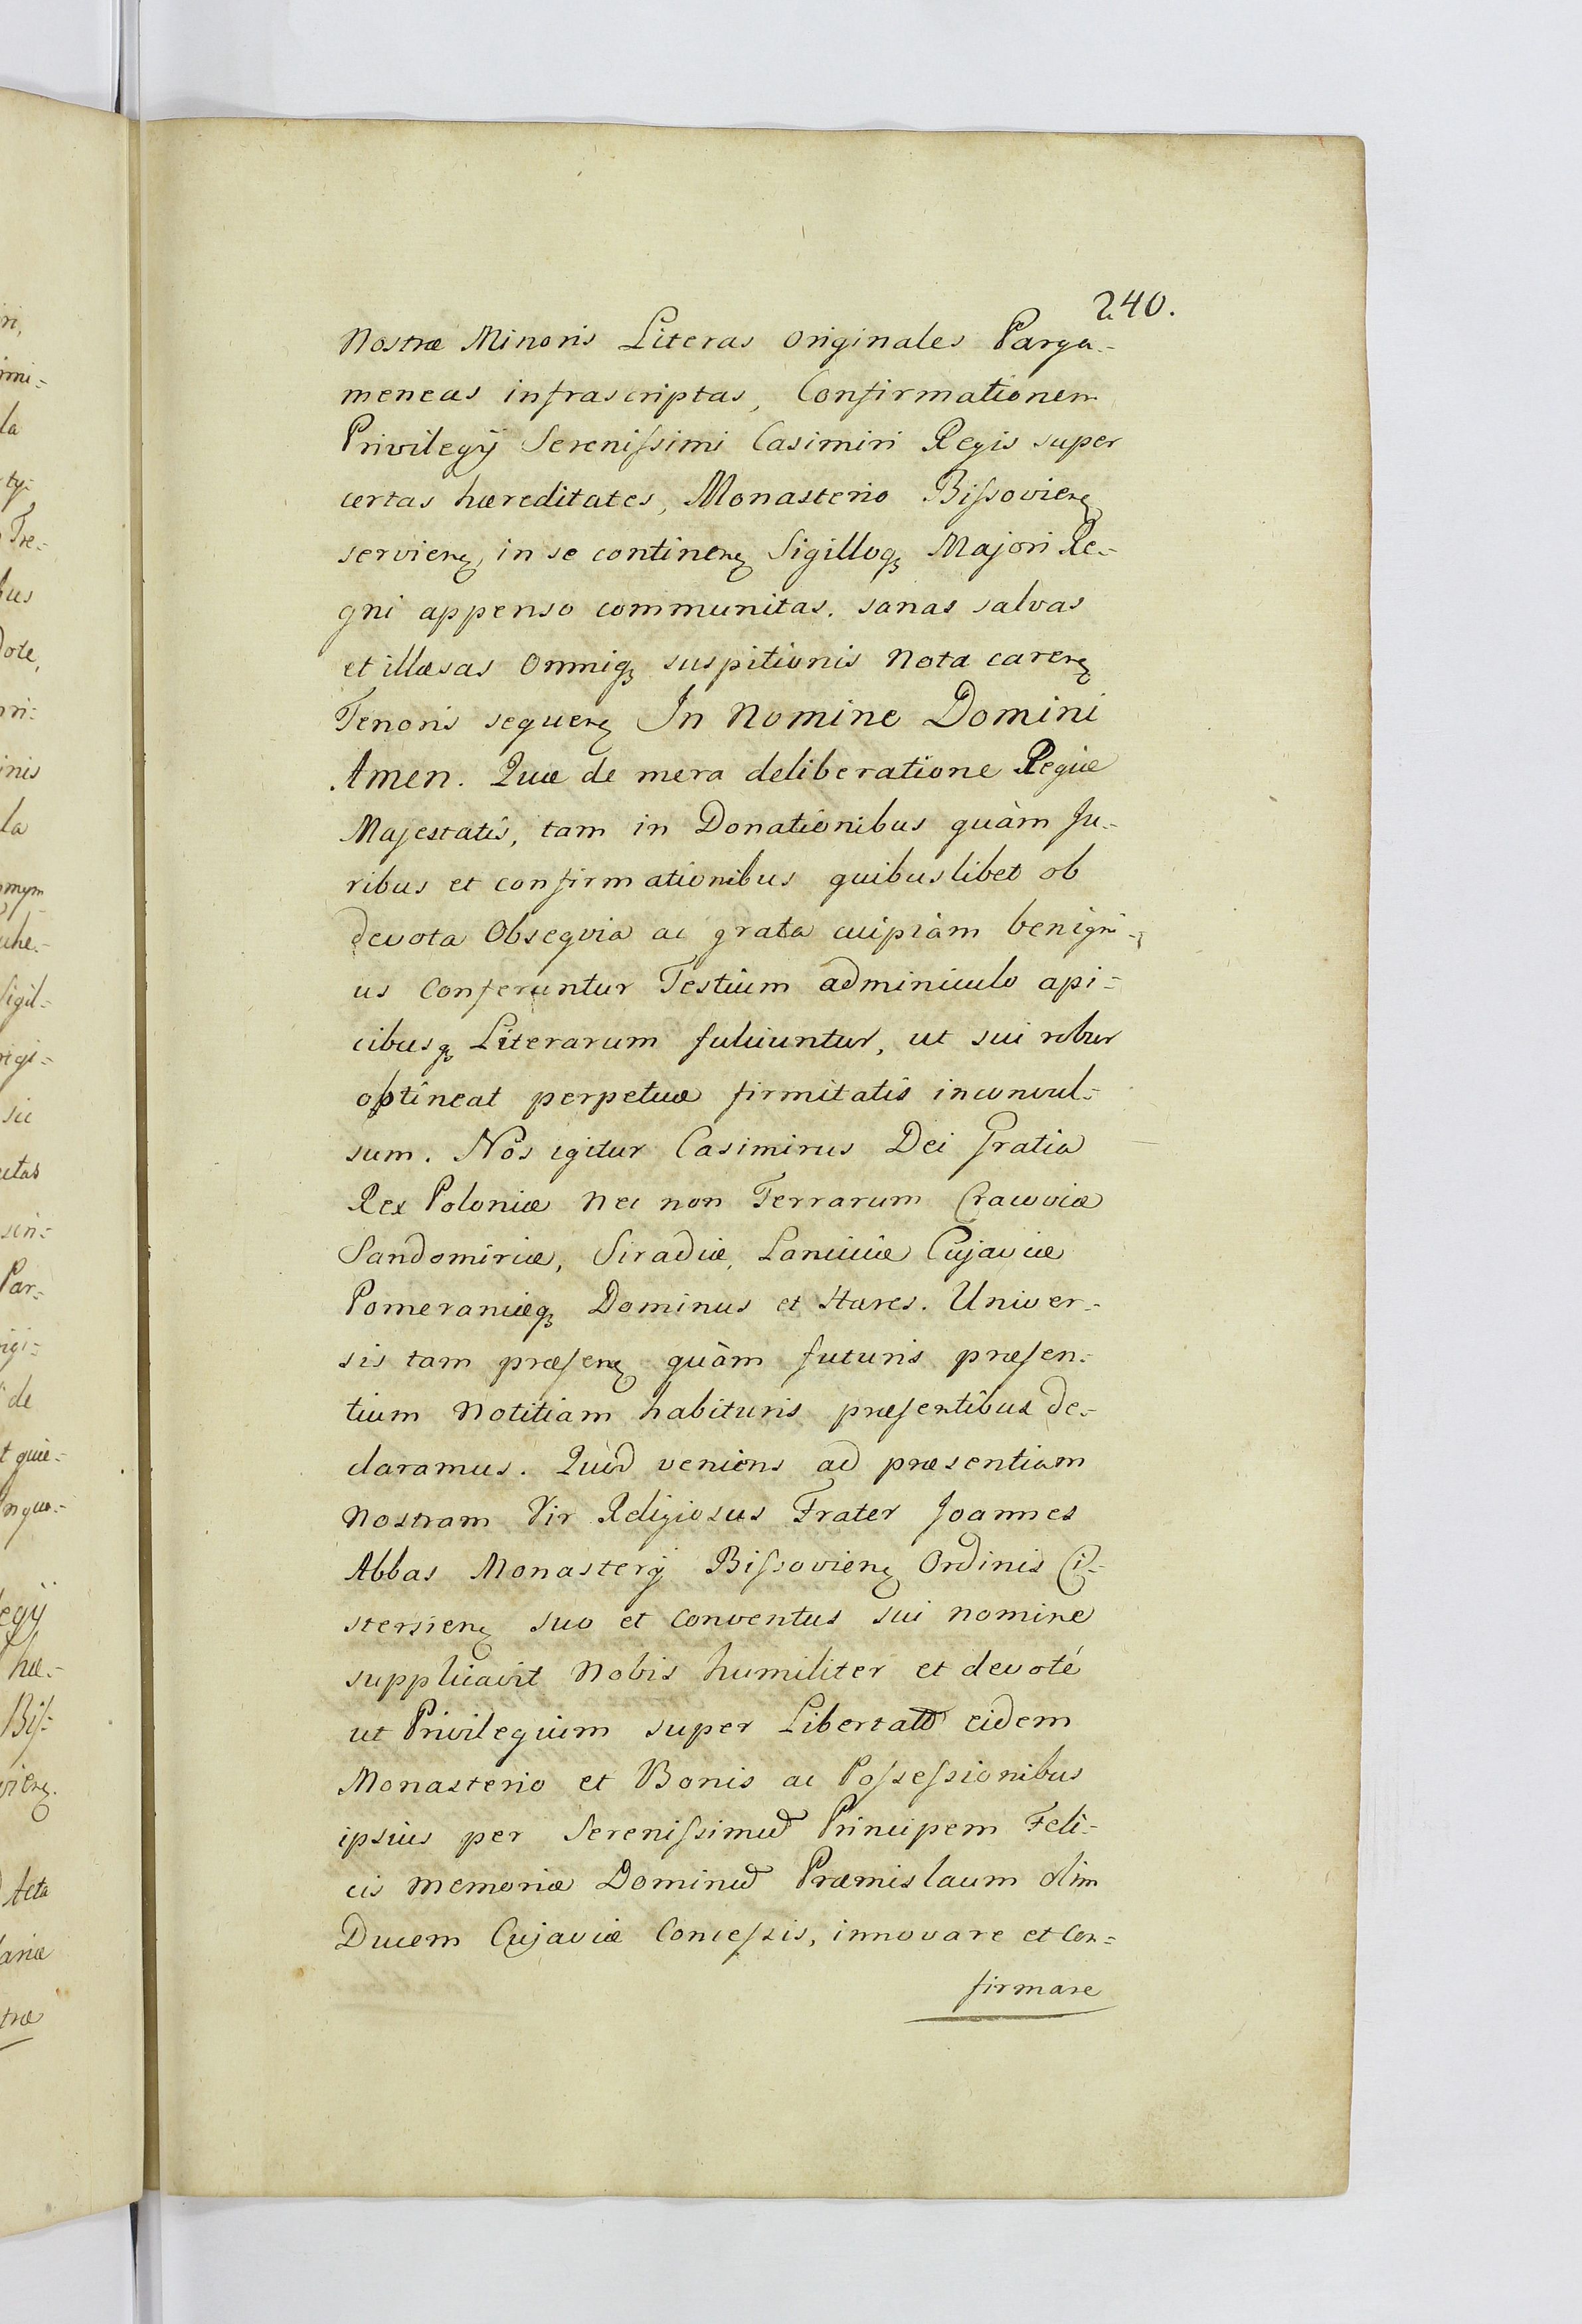 240.
Nostræ Minoris Literas originales Parga=
meneas infrascriptas, Confirmationem
Privilegÿ Sereniſsimi Casimiri Regis super
certas hæreditates, Monasterio Biſsovienꝫ
servienꝫ, in se continenꝫ Sigilloqꝫ Majori Re=
gni appenso communitas. sanas salvas
et illæsas omniqꝫ suspitionis nota carenꝫ
Tenoris sequenꝫ In Nomine Domini
Amen. Quæ de mera deliberatione Regiæ
Majestatis, tam in Donationibus quàm Ju=
ribus et confirmationibus quibuslibet ob
devota Obsequia ac grata cuipiàm benigni=
us Conferuntur Testium adminiculo api=
cibusqꝫ Literarum fulciuntur, ut sui robur
obtineat perpetuæ firmitatis inconvul=
sum. Nos igitur Casimirus Dei Gratia
Rex Poloniæ Nec non Terrarum Cracoviæ
Sandomiriæ, Siradiæ, Lanciciæ Cujaviæ
Pomeraniæqꝫ Dominus et Hæres. Univer=
sis tam præſenꝫ quàm futuris præſen=
tium Notitiam habituris præſentibus de=
claramus. Quòd veniens ad præsentiam
Nostram Vir Religiosus Frater Joannes
Abbas Monasterÿ Biſsovienꝫ Ordinis Ci=
stersienꝫ suo et Conventus sui nomine
supplicavit Nobis humiliter et devoté
ut Privilegium super Libertatibꝰ eidem
Monasterio et Bonis ac Poſseſsionibus
ipsius per Sereniſsimū Principem Feli=
cis Memoriæ Dominū Præmislaum olim
Ducem Cujaviæ Conceſsis, innovare et Con=
firmare